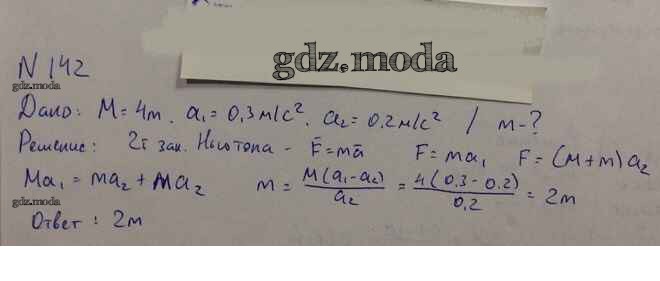 gdz.moda
N 142
gdz.moda
Дано: M = 4т. a₁ = 0,3 м/с². a₂ = 0.2 м/с² / m-?
Решение: 2й зак. Ньютона - F̄ = mā F = ma₁ F = (M+m) a₂
Ma₁ = ma₂ + Ma₂ m = M(a₁-a₂)/a₂ = 4(0,3-0.2)/0,2 = 2т
gdz.moda
Ответ: 2т